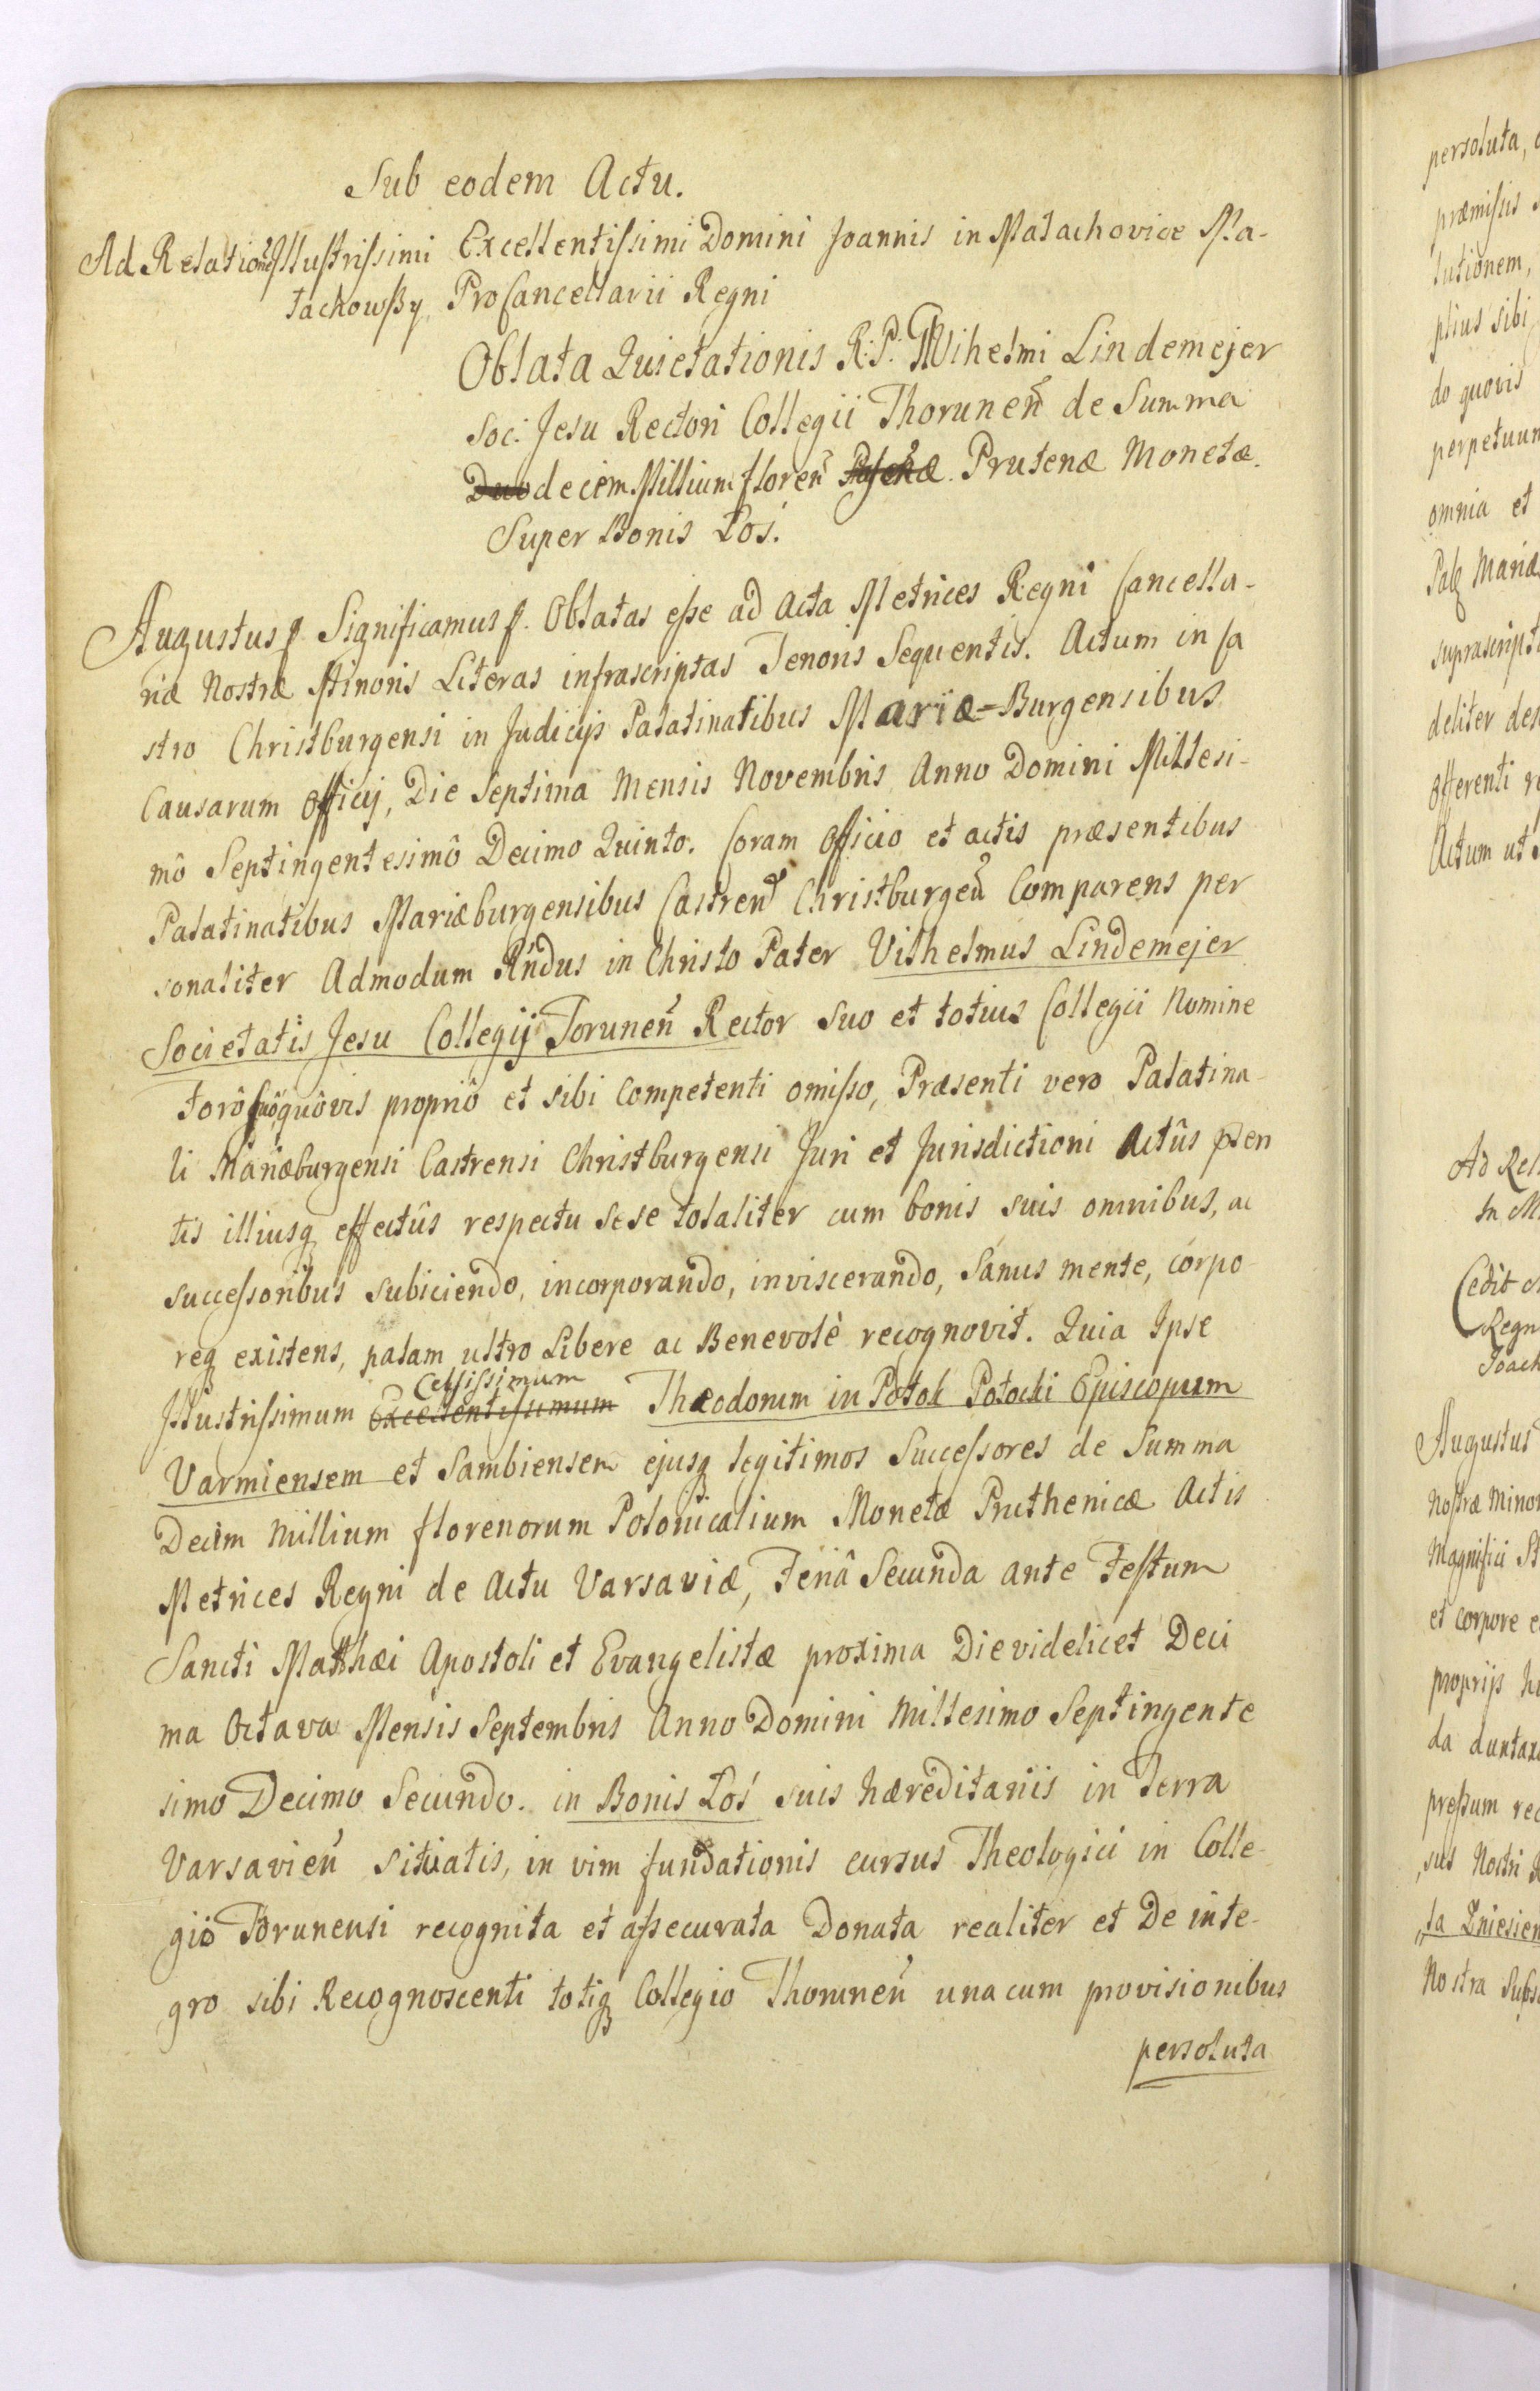 Sub eodem Actu.
Ad Relationẽ Illustrissimi Excellentissimi Domini Joannis in Małachovice Ma-
łachowsky, ProCancellarii Regni
Oblata Quietationis R: P: Wilhelmi Lindemejer
Soc: Jesu Rectori Collegii Thorunen̄ de Summa
Duodecim Millium floren̄ Prutenæ Monetæ.
Super Bonis Łoś.
Augustus Significamus Oblatas esse ad Acta Metrices Regni Cancella-
riæ Nostræ Minoris Literas infrascriptas Tenoris Sequentis. Actum in Ca
stro Christburgensi in Judicijs Palatinatibus Mariæ-Burgensibus
Causarum Officij, Die Septima Mensis Novembris Anno Domini Millesi-
mô Septingentesimô Decimo Quinto. Coram Officio et actis præsentibus
Palatinatibus Mariæburgensibus Castren̄ Christburgen̄ Comparens per
sonaliter Admodum Rñdus in Christo Pater Vilhelmus Lindemejer
Societatis Jesu Collegij Torunen̄ Rector suo et totius Collegii Nomine
forô suô quôvis propriô et sibi Competenti omisso, Præsenti vero Palatina-
li Mariæburgensi Castrensi Christburgensi Juri et Jurisdictioni Actûs pñen
tis illiusq effectûs respectu sese totaliter cum bonis suis omnibus, ac
successoribus subiciendo, incorporando, inviscerando, Sanus mente, corpo-
req existens, palam ultro Libere ac Benevolè recognovit. Quia Ipse
Celsissimum
Illustrissimum Excellentissimum Thæodorum in Potok Potocki Episcopum
Varmiensem et Sambiensem ejusq legitimos Successores de Summa
Decem Millium florenorum Polonicalium Monetæ Pruthenicæ Actis
Metrices Regni de Actu Varsaviæ, Feriâ Secunda ante Festum
Sancti Matthæi Apostoli et Evangelistæ proxima Die videlicet Deci
ma Octava Mensis Septembris Anno Domini Millesimo Septingente
simo Decimo Secundo. in Bonis Łoś suis hæreditariis in Terra
Varsavien̄ situatis, in vim fundationis cursus Theologici in Colle-
gio Torunensi recognita et assecurata Donata realiter et De inte-
gro sibi Recognoscenti totiq Collegio Thorunen̄ una cum provisionibus
persoluta
persoluta,
præmissis
lutionem,
plius sibi
do quovis
perpetuum
omnia et
Mariæ
suprascript
deliter des
Offerenti re
Actum ut
Ad Rel
in M
Cedit
Regn
Joach
Augustus
Nostræ Minor
Magnifici St
et corpore e
proprijs
da duntaxa
pressum rec
sus Nostri
ta Zniesien
Nostra Subs